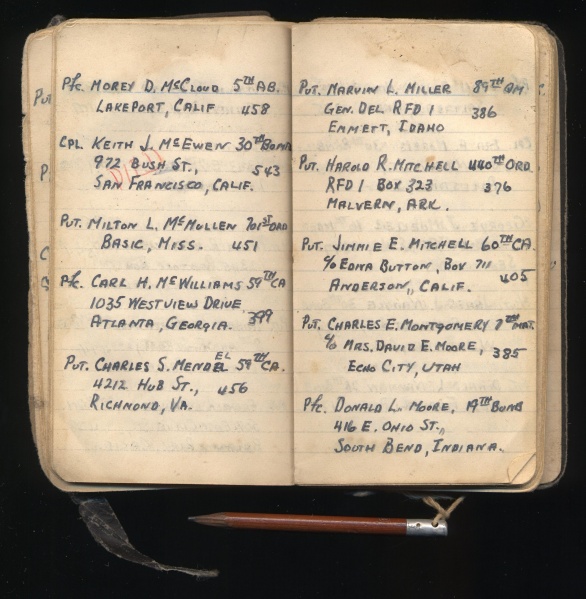 Pfc. MOREY D. McCLOUD 5TH AB.
LAKEPORT, CALIF. 458
CPL. KEITH J. McEWEN 30TH BOMB
972 BUSH ST., 543
SAN FRANCISCO, CALIF.
PVT. MILTON L. McMULLEN 701ST ORD
BASIC, MISS. 451
Pfc. CARL H. McWILLIAMS 59TH CA
1035 WESTVIEW DRIVE
ATLANTA, GEORGIA. 399
PVT. CHARLES S. MENDEL 59TH CA.
4212 HUB ST., 456
RICHMOND, VA.
PVT. MARVIN L. MILLER 89TH QM
GEN. DEL. RFD 1 386
EMMETT, IDAHO
PVT. HAROLD R. MITCHELL 440TH ORD
RFD 1 BOX 323 376
MALVERN, ARK.
PVT. JIMMIE E. MITCHELL 60TH CA.
c/o EDNA BUTTON, BOX 711
ANDERSON, CALIF. 405
PVT. CHARLES E. MONTGOMERY 7TH MAT.
c/o MRS. DAVID E. MOORE, 385
ECHO CITY, UTAH
Pfc. DONALD L. MOORE, 19TH BOMB
416 E. OHIO ST.,
SOUTH BEND, INDIANA.